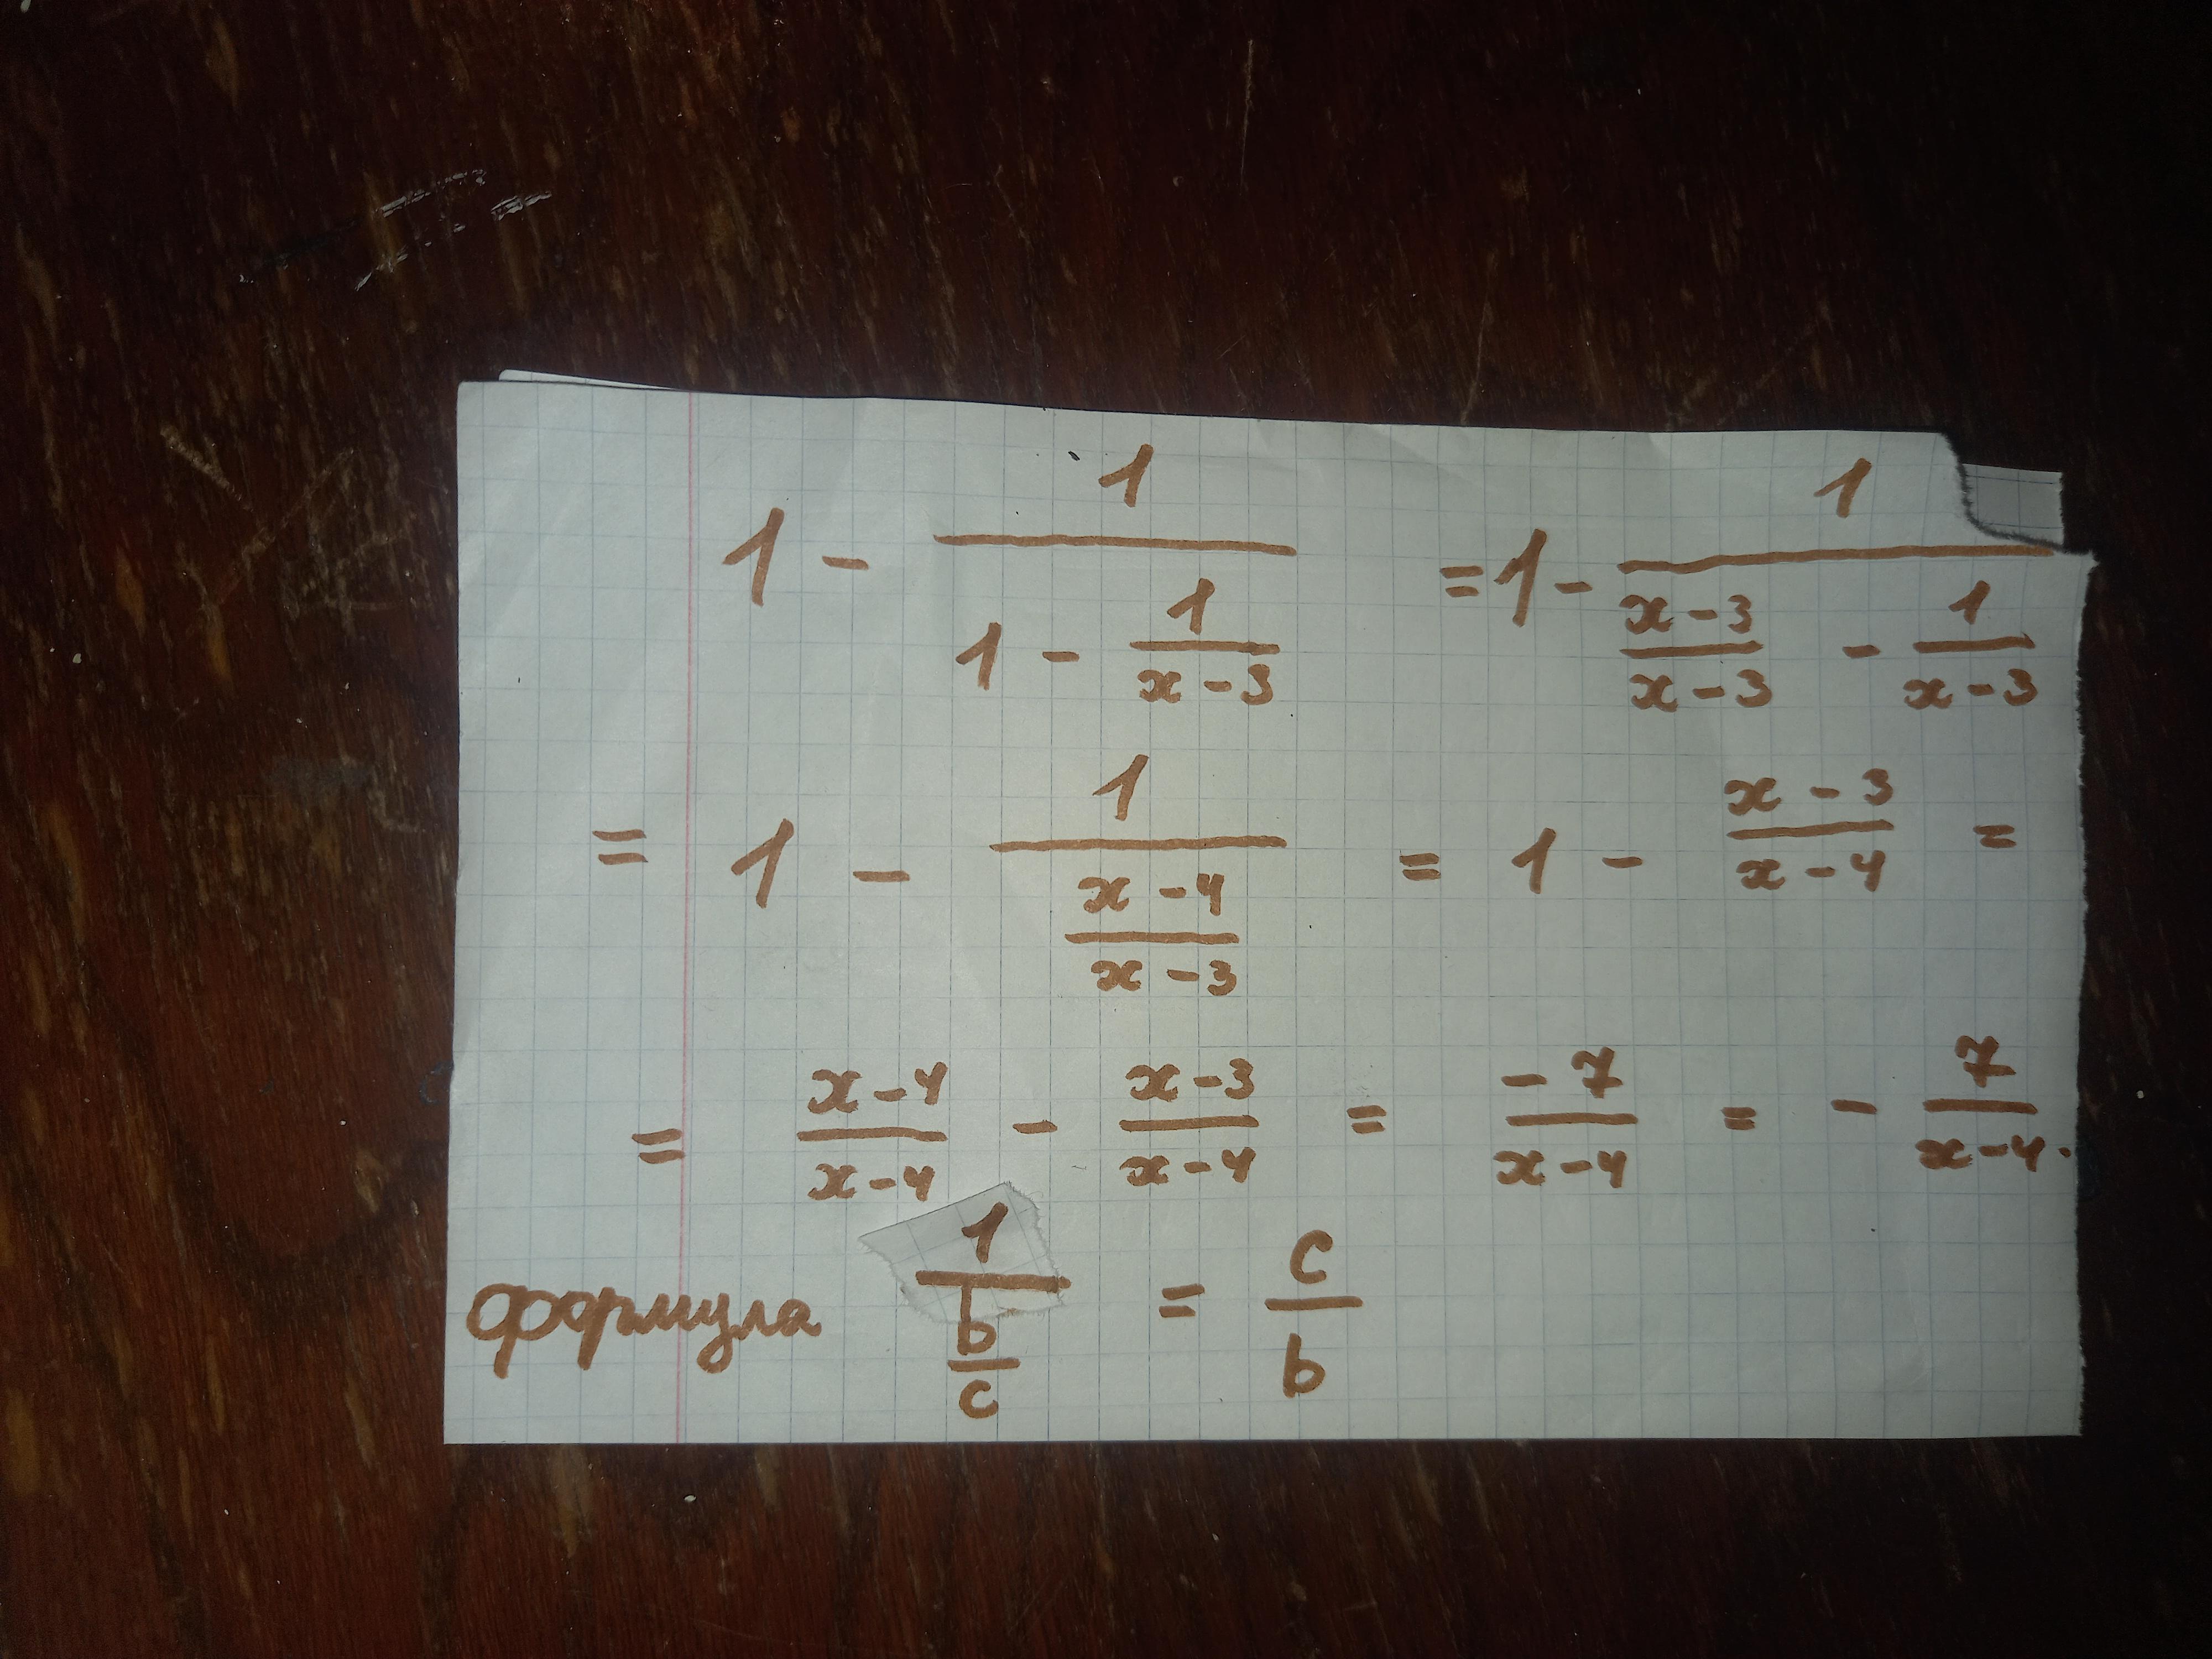 1 - \frac{1}{1 - \frac{1}{x-3}} = 1 - \frac{1}{\frac{x-3}{x-3} - \frac{1}{x-3}}
= 1 - \frac{1}{\frac{x-4}{x-3}} = 1 - \frac{x-3}{x-4} =
= \frac{x-4}{x-4} - \frac{x-3}{x-4} = \frac{-7}{x-4} = - \frac{7}{x-4}.
формула \frac{1}{\frac{b}{c}} = \frac{c}{b}